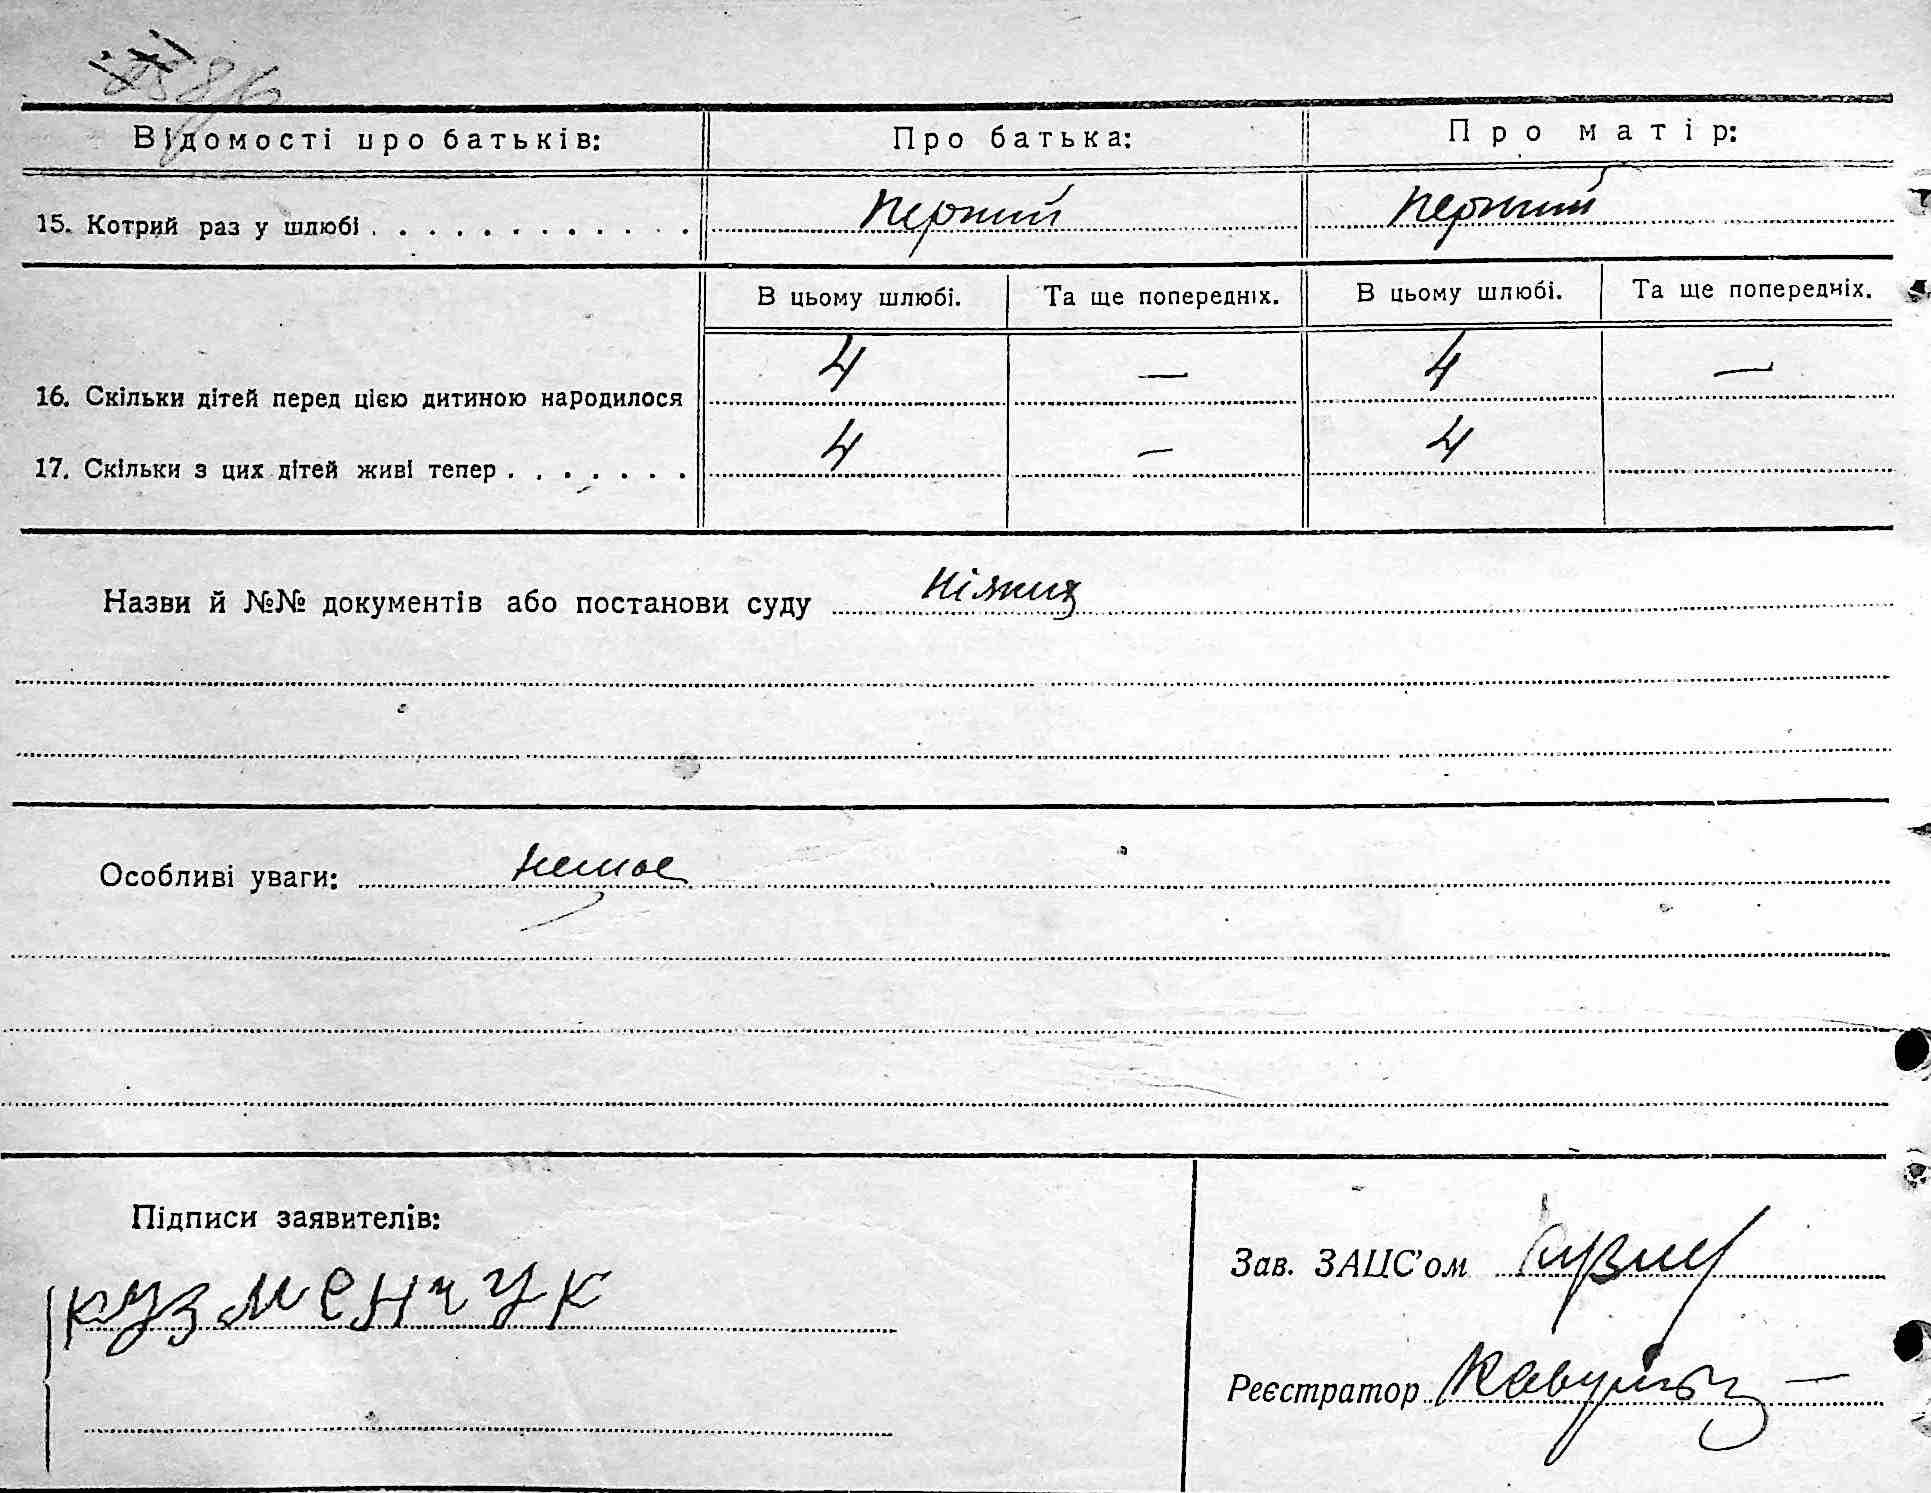 Відомості про батьків: Про батька: Про матір:
15. Котрий раз у шлюбі . . . . . . . . . . . . перший перший
В цьому шлюбі. Та ще попередніх. В цьому шлюбі. Та ще попередніх.
16. Скільки дітей перед цією дитиною народилося 4 — 4 —
17. Скільки з цих дітей живі тепер . . . . . . . 4 — 4
Назви й №№ документів або постанови суду ніяких
Особливі уваги: немає
Підписи заявителів:
Зав. ЗАЦС'ом
кузменчук
Реєстратор